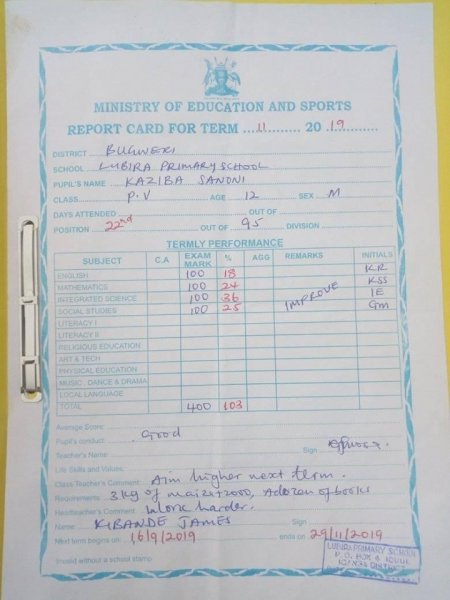 MINISTRY OF EDUCATION AND SPORTS
REPORT CARD FOR TERM ...11......... 20 .19..........
DISTRICT BUGWERI
SCHOOL LUBIRA PRIMARY SCHOOL
PUPIL'S NAME KAZIBA SANONI
CLASS P.V AGE 12 SEX M
DAYS ATTENDED OUT OF
POSITION 22nd OUT OF 95 DIVISION
TERMLY PERFORMANCE
SUBJECT C.A EXAM MARK % AGG REMARKS INITIALS
ENGLISH 100 18 KR
MATHEMATICS 100 24 IMPROVE KSS
INTEGRATED SCIENCE 100 36 IE
SOCIAL STUDIES 100 25 GM
LITERACY I
LITERACY II
RELIGIOUS EDUCATION
ART & TECH
PHYSICAL EDUCATION
MUSIC, DANCE & DRAMA
LOCAL LANGUAGE
TOTAL 400 103
Average Score:
Pupil's conduct: Good
Teacher's Name: Sign
Life Skills and Values:
Class Teacher's Comment: Aim higher next term.
Requirements: 3kg of maize+2000, A dozen of books
Headteacher's Comment: Work harder.
Name: KIBANDE JAMES Sign
Next term begins on: 16/9/2019 ends on 29/11/2019
Invalid without a school stamp
LUBIRA PRIMARY SCHOOL
P.O. BOX 4 IDUDI